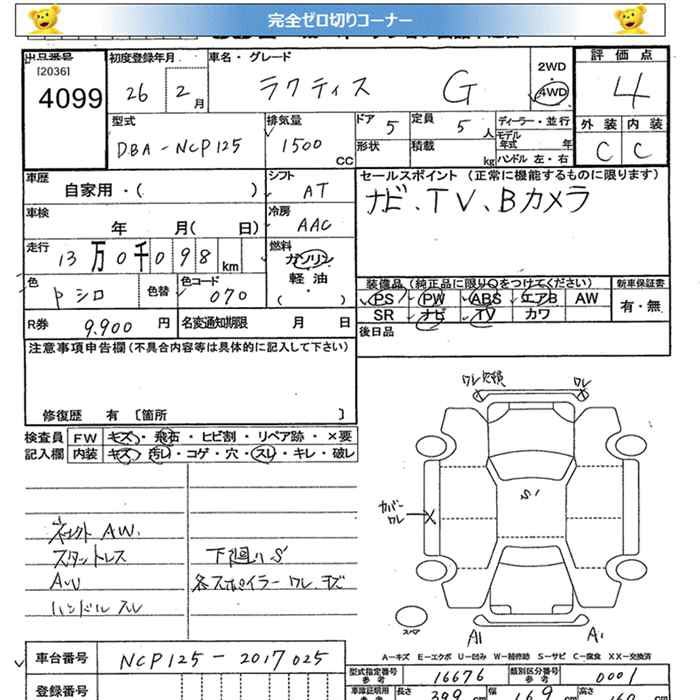 完全ゼロ切りコーナー
出品番号 初度登録年月 車名・グレード 2WD 評価点
[2036] 4099 26 2月 ラクティス G 4WD 4
型式 排気量 ドア 定員 ディーラー・並行 外装 内装
DBA-NCP125 1500 CC 5 5人 モデル年式 年 C C
形状 積載 kg ハンドル 左・右
車歴 シフト セールスポイント (正常に機能するものに限ります)
自家用・( ) AT ナビ、TV、Bカメラ
車検 冷房
年 月( 日) AAC
走行 燃料
13万0千098km ガソリン
軽・油
( )
色 色替 色コード 装備品(純正品に限り○をつけてください) 新車保証書
シロ 070 PS PW ABS エアB AW 有・無
SR ナビ TV カワ
R券 9,900円 名変通知期限 月 日 後日品
注意事項申告欄(不具合内容等は具体的に記入して下さい)
修復歴 有 [箇所 ]
検査員 FW キズ・飛石・ヒビ割・リペア跡・×要
記入欄 内装 キズ・汚レ・コゲ・穴・スレ・キレ・破レ
ワレ欠損 ワレ
S1
カバーワレ
AW.
スタットレス 下廻りS
AW 各スポイラーワレ、キズ
ハンドルスレ
スペア
A1 A1
A-キズ E-エクボ U-凹み W-補修跡 S-サビ C-腐食 XX-交換済
車台番号 NCP125-2017025
型式指定番号 参考 16676 類別区分番号 参考 0001
登録番号 車庫証明用 参考 長さ 399 cm 幅 169 cm 高さ 160 cm